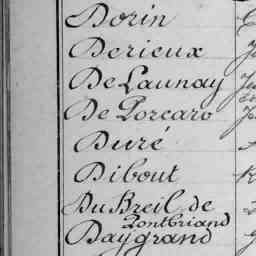 Dorin
Derieux
De Launay
De Porcaro
Duré
Dibout
Du Breil de
Pontbriand
Daygrand